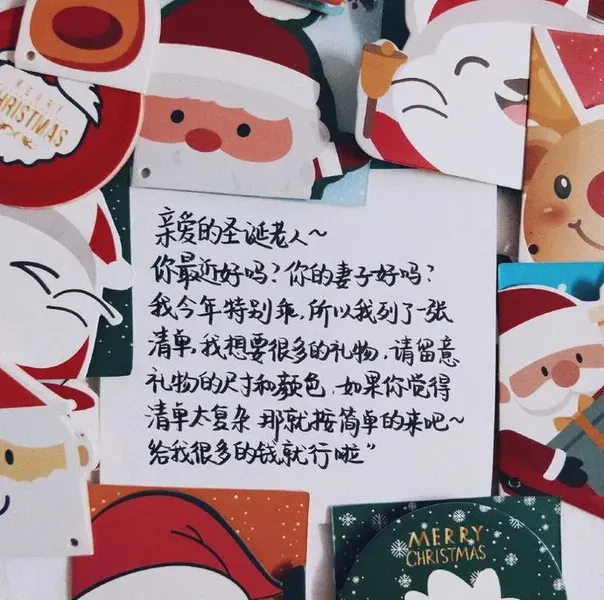 MERRY
CHRISTMAS
亲爱的圣诞老人~
你最近好吗?你的妻子好吗?
我今年特别乖,所以我列了一张
清单,我想要很多的礼物,请留意
礼物的尺寸和颜色,如果你觉得
清单太复杂 那就按简单的来吧~
给我很多的钱就行啦"
MERRY
CHRISTMAS